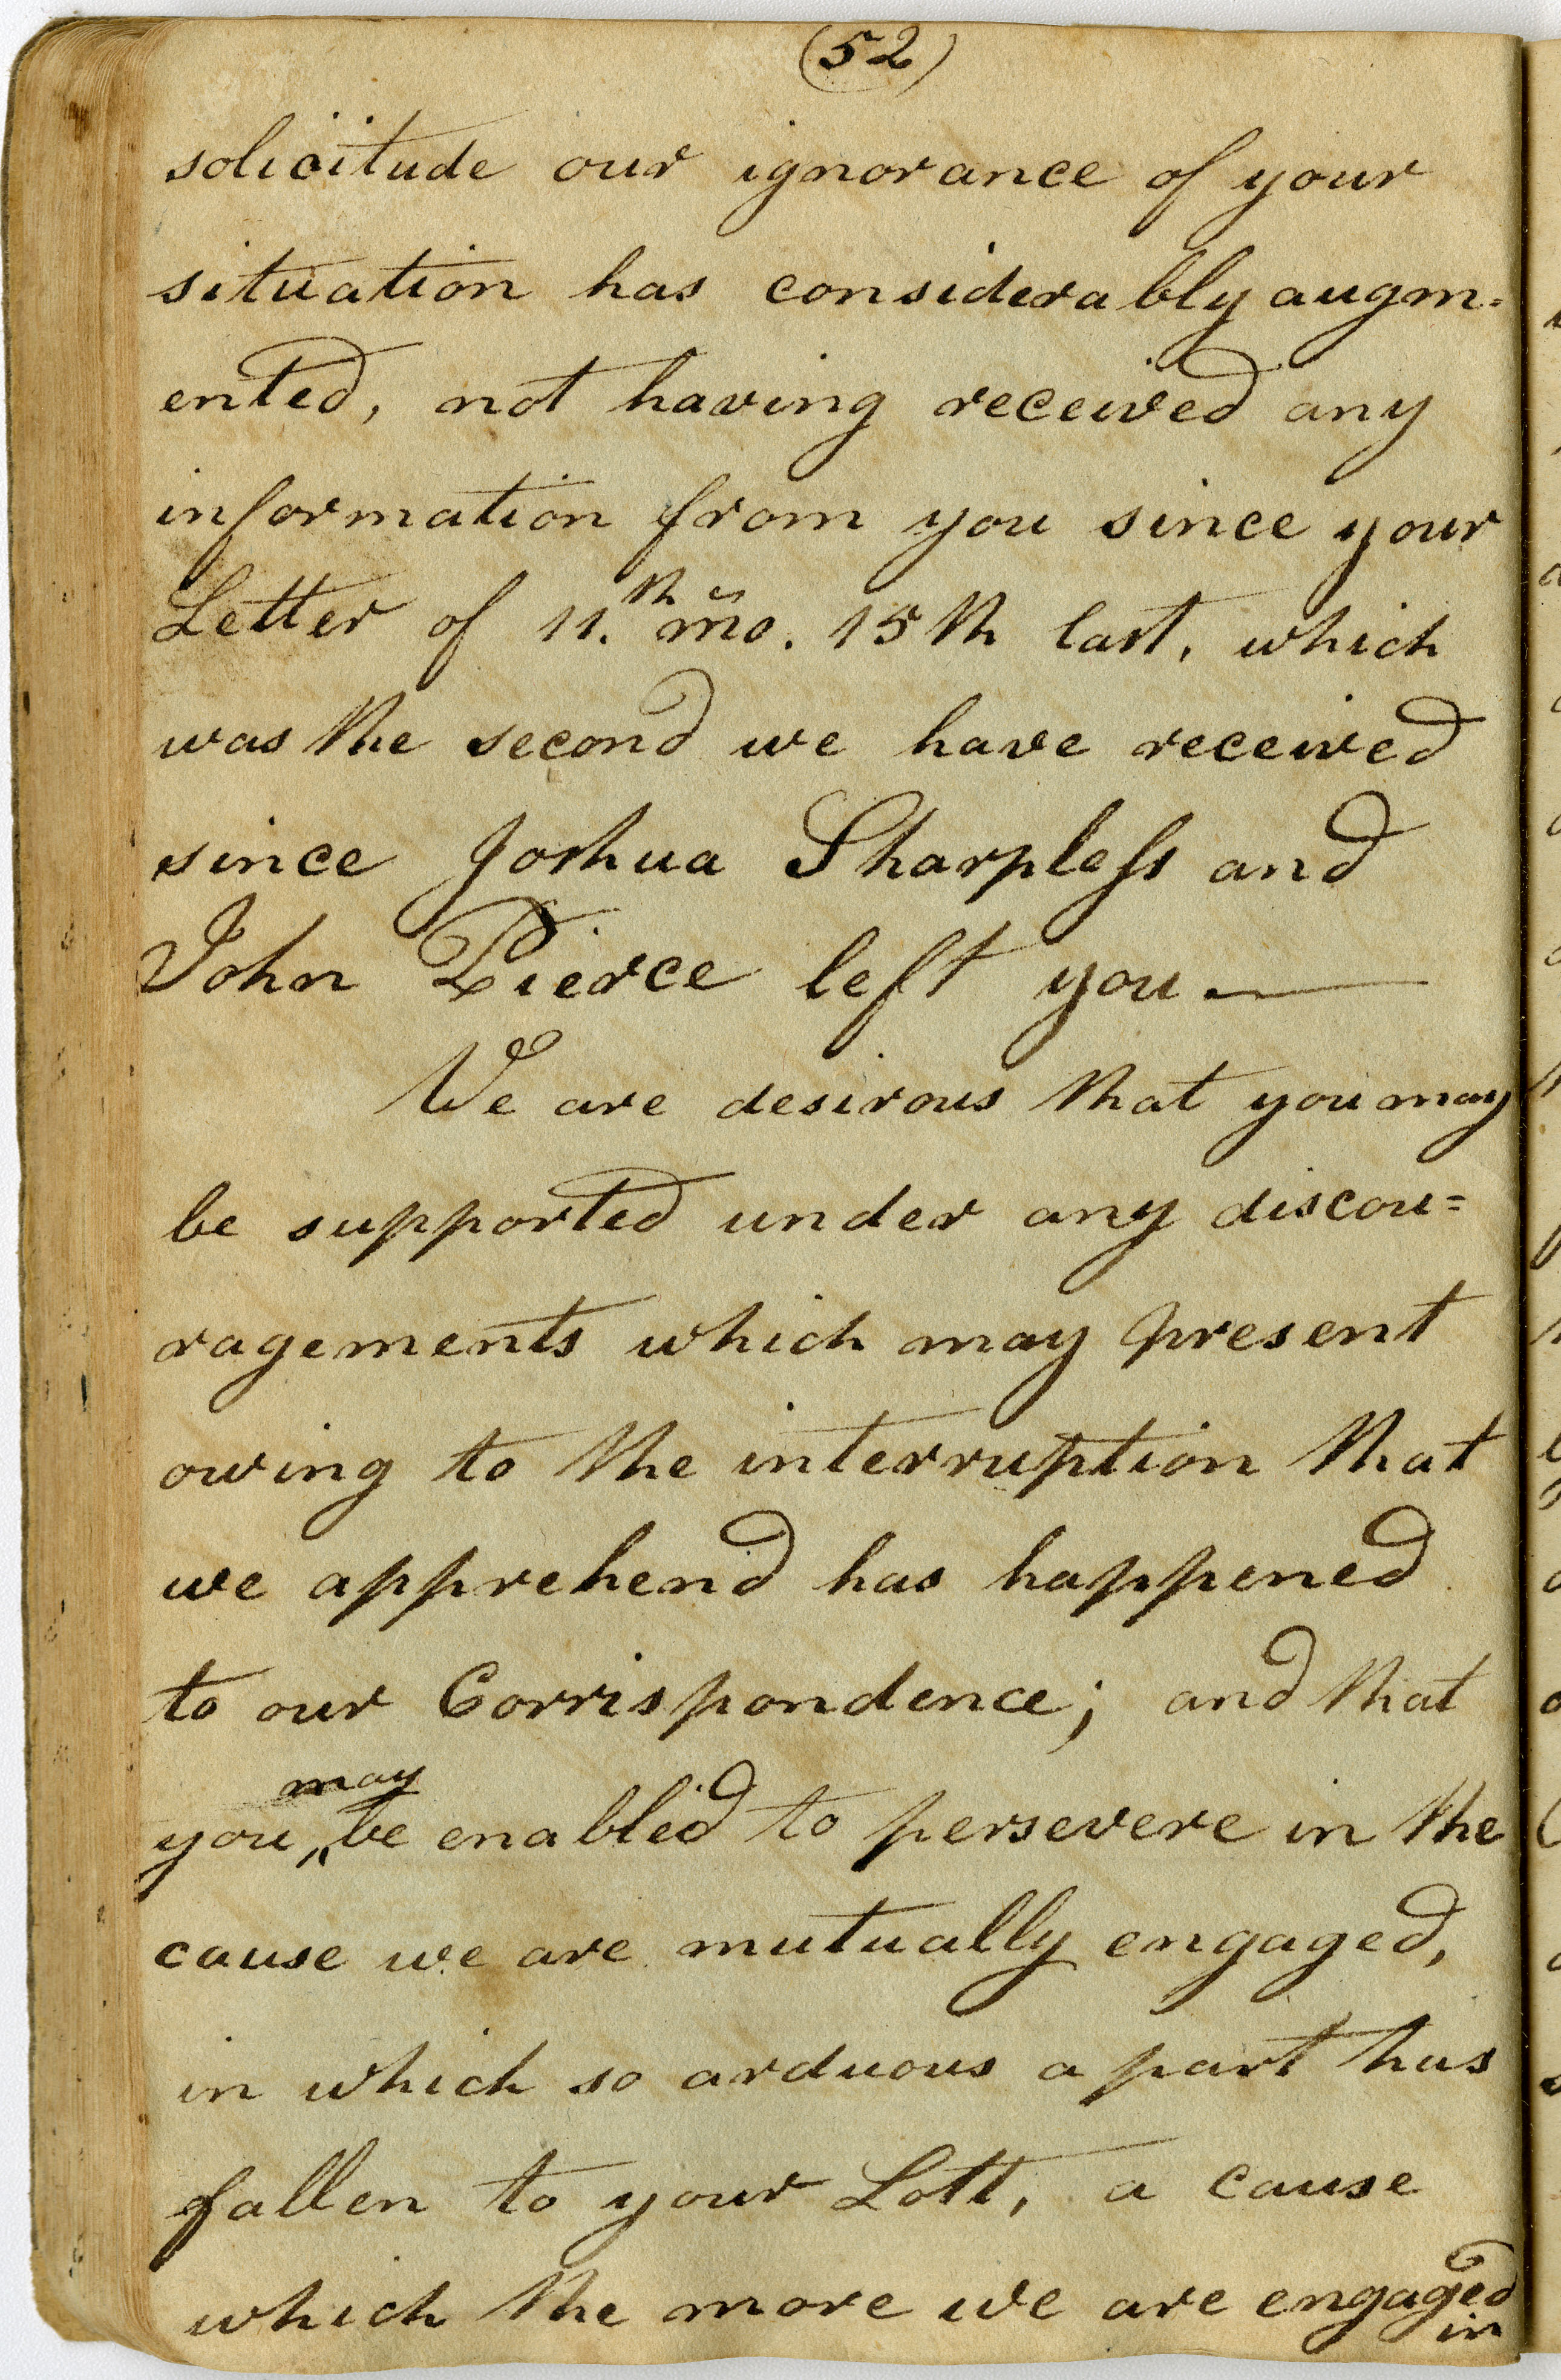 (52)
solicitude our ignorance of your
situation has considerably augm-
ented, not having received any
information from you since your
Letter of 11.th mo. 15th last, which
was the second we have received
since Joshua Sharpless and
John Pierce left you —
We are desirous that you may
be supported under any discou=
ragements which may present
owing to the interruption that
we apprehend has happened
to our Corrispondence; and that
may
you, be enabled to persevere in the
cause we are mutually engaged,
in which so arduous a part has
fallen to your Lott, a cause
which the more we are engaged
in